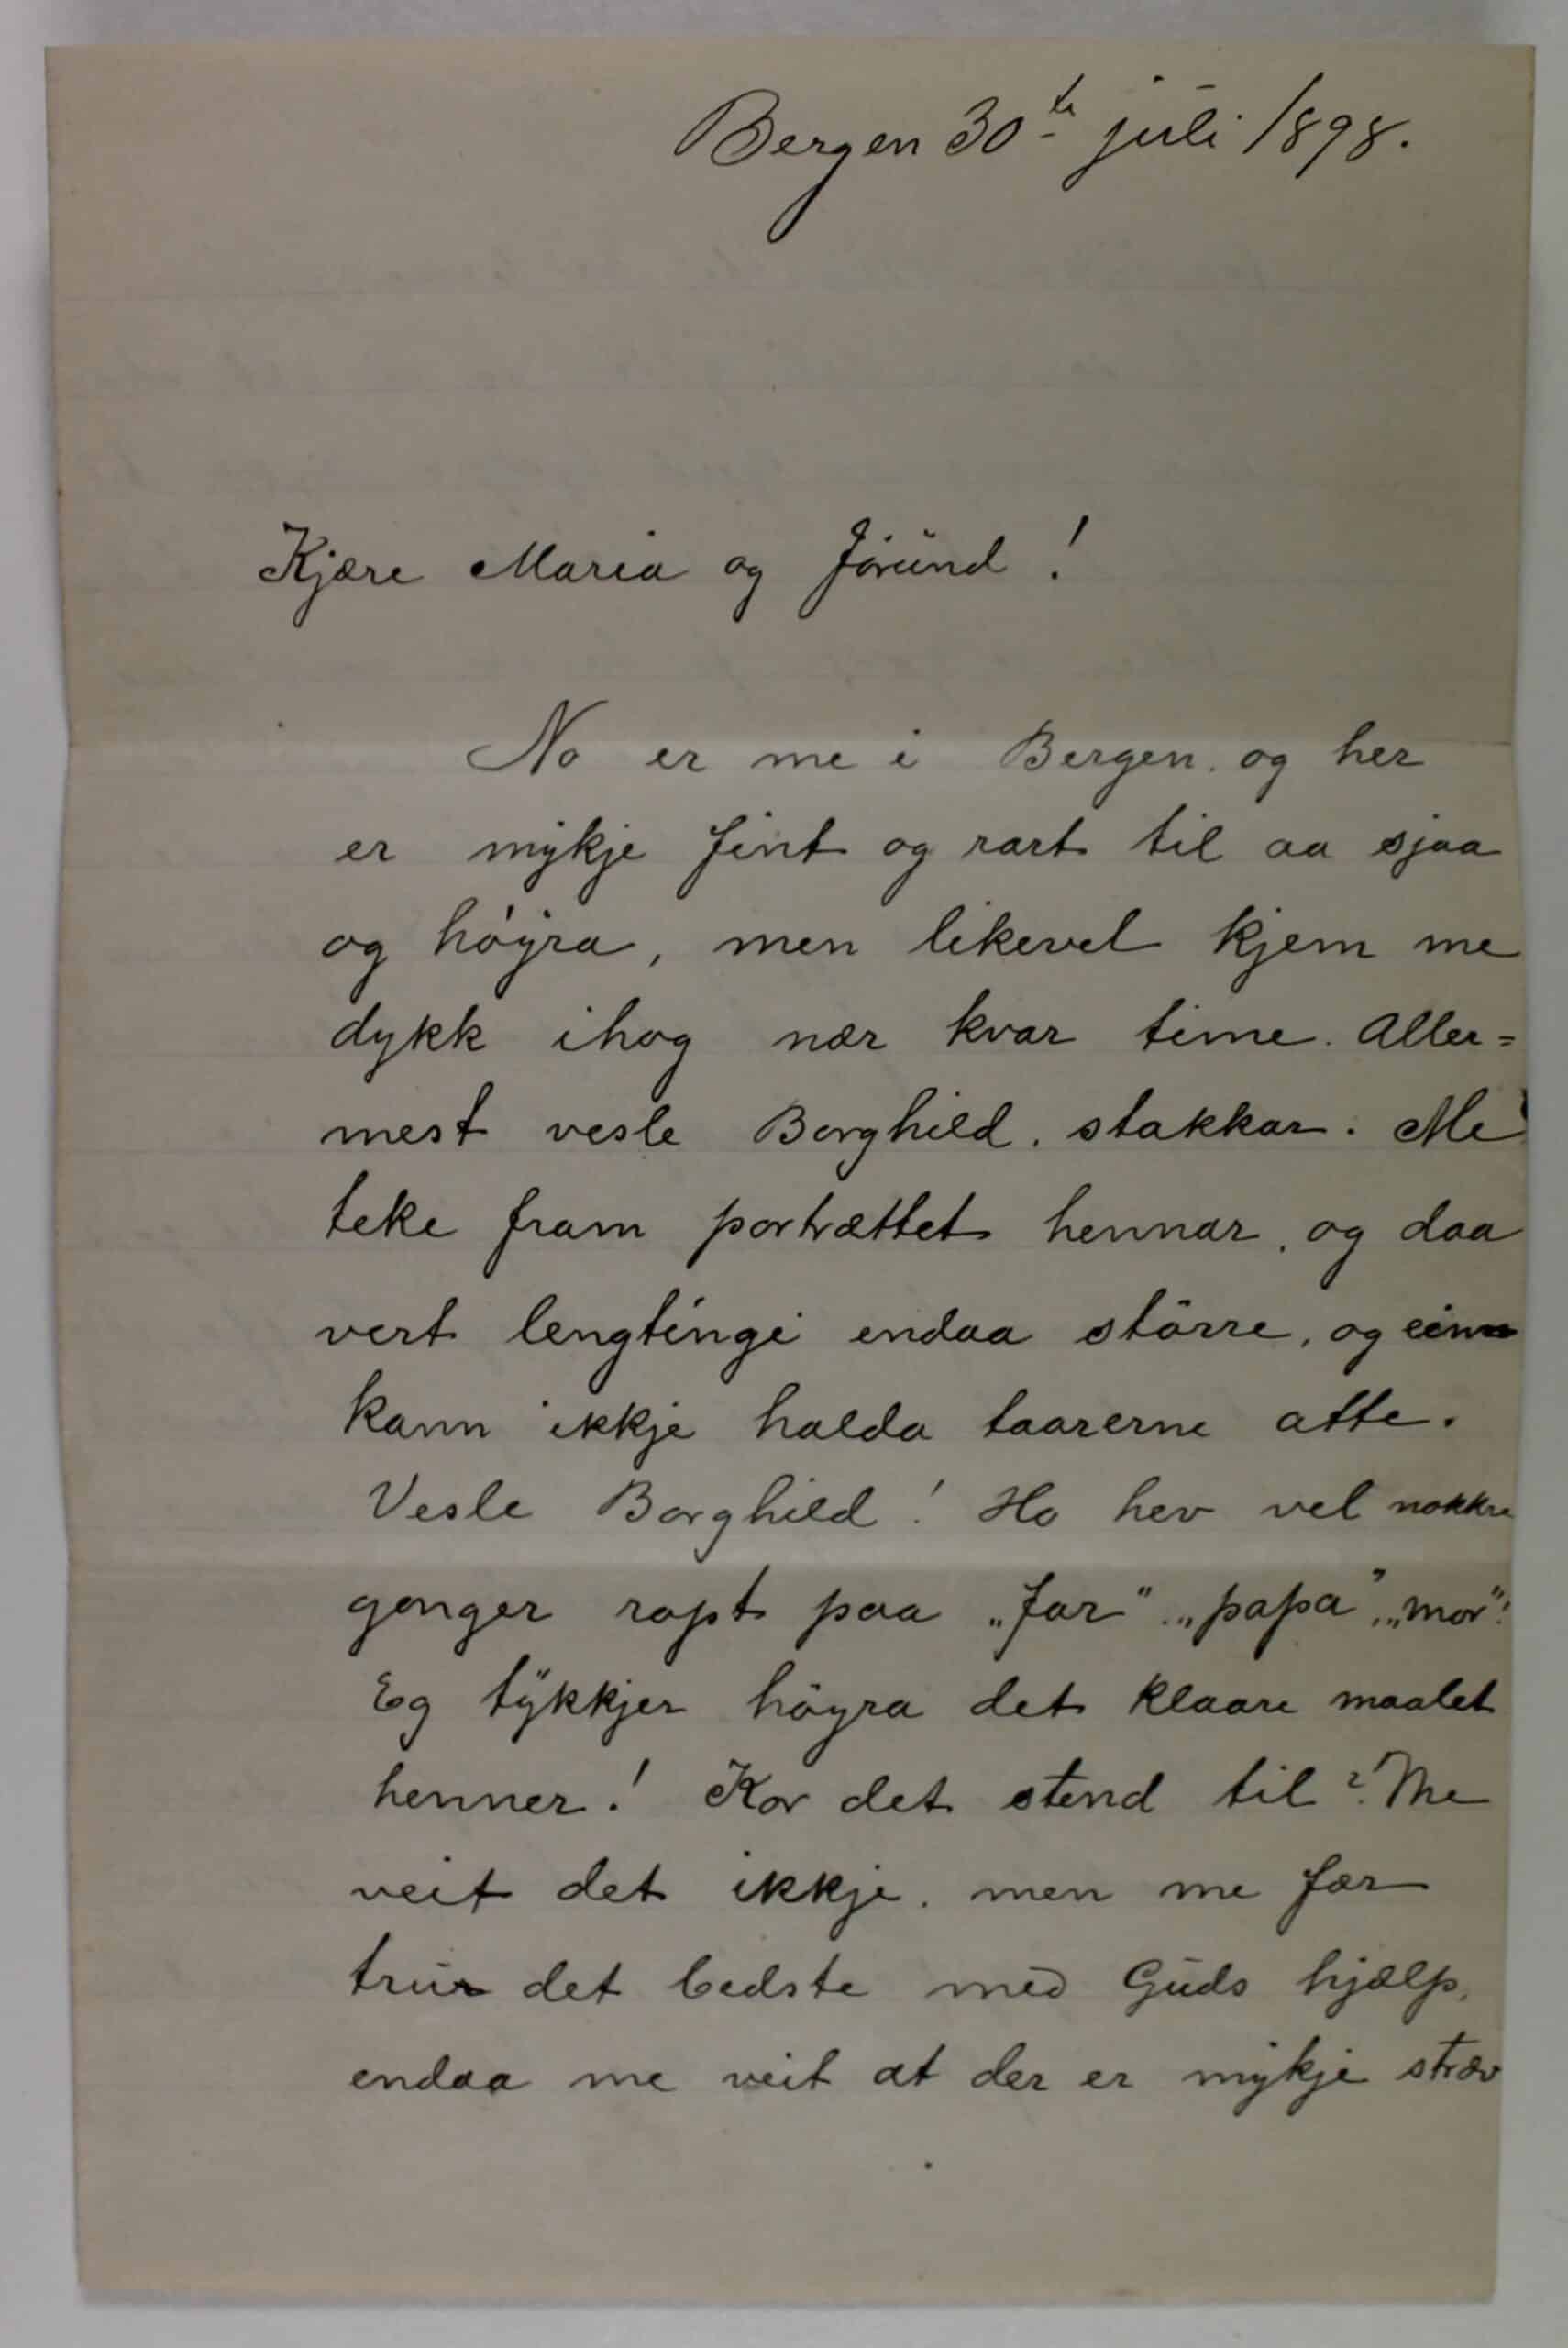 Bergen 30te juli 1898.
Kjære Maria og Jörund!
No er me i Bergen. og her
er mykje fint og rart til aa sjaa
og höyra, men likevel kjem me
dykk ihog nær kvar time. Aller=
mest vesle Borghild. stakkar. Me
teke fram portrættet hennar, og daa
vert lengtingi endaa större, og ein
kann ikkje halda taarerne atte.
Vesle Borghild! Ho hev vel nokkre
gonger ropt paa „far” „papa”, „mor”!
Eg tykkjer höyra det klaare maalet
henner! Kor det stend til? Me
veit det ikkje. men me før
trur det bedste med Guds hjælp,
endaa me veit at der er mykje stræv